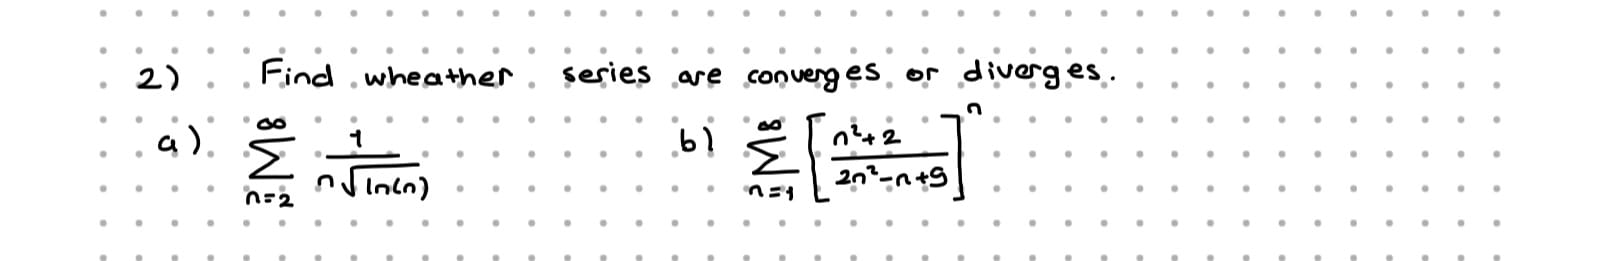 2) Find wheather series are converges or diverges.
a) ∑_{n=2}^{∞} 1/(n√ln(n)) b) ∑_{n=1}^{∞} [(n²+2)/(2n²-n+9)]^n